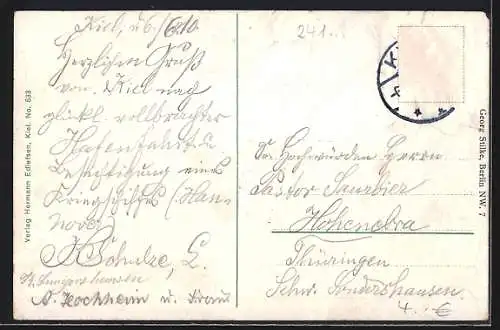 Kiel, d 6./6.10
Herzlichen Gruß
von Kiel nach
glückl. vollbrachter
Hafenfahrt u.
Besichtigung eines
Kriegschiffes (Han-
nover)
Schulze, L.
A. Hochheim u. Frau
241
Sr. Hochwürden Herrn
Pastor
Hohenebra
Thüringen
Schw. Sondershausen
4.- €
Verlag Hermann Edlefsen, Kiel. No. 633
Georg Stilke, Berlin NW. 7